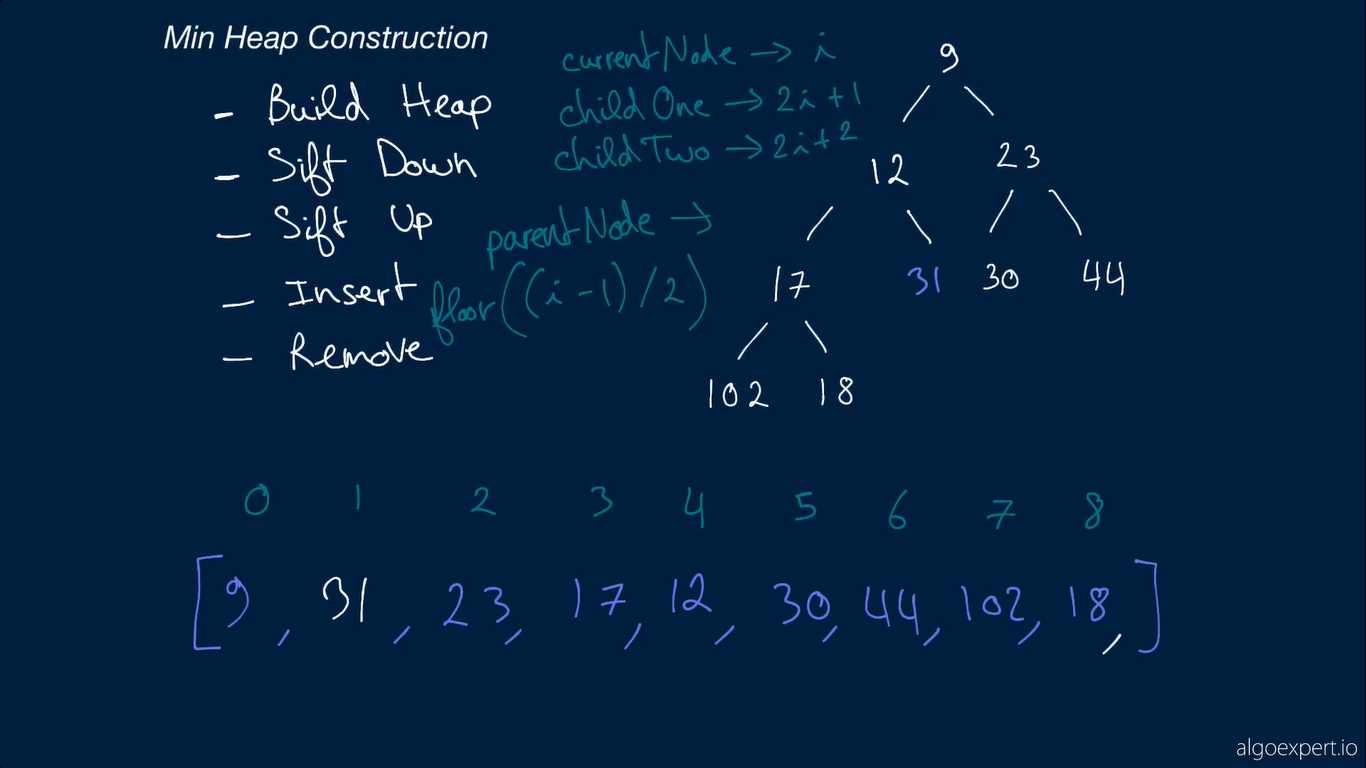 Min Heap Construction
- Build Heap
- Sift Down
- Sift Up
- Insert
- Remove
currentNode → i
childOne → 2i+1
childTwo → 2i+2
parentNode →
floor((i-1)/2)
9
12 23
17 31 30 44
102 18
0 1 2 3 4 5 6 7 8
[9, 31, 23, 17, 12, 30, 44, 102, 18,]
algoexpert.io